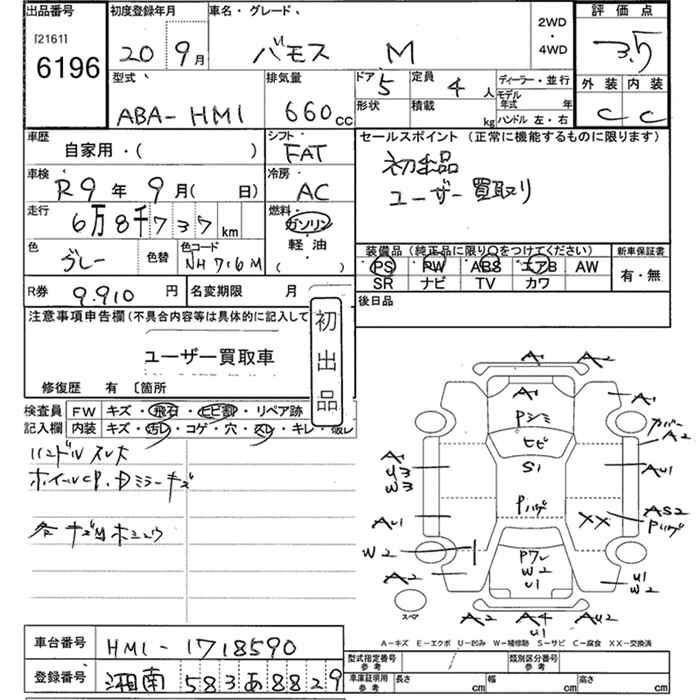 出品番号
[2161]
6196
初度登録年月
20 9月
車名・グレード
バモス M
2WD
・
4WD
評価点
3.5
外装 内装
C C
型式
ABA-HM1
排気量
660cc
ドア 5
定員 4人
形状
積載 kg
ディーラー・並行
モデル年式 年
ハンドル 左・右
車歴
自家用・( )
シフト
FAT
セールスポイント (正常に機能するものに限ります)
初出品
ユーザー買取り
車検
R9年9月( 日)
冷房
AC
走行
6万8千737km
燃料
ガソリン
軽油
( )
色
グレー
色替
色コード
NH716M
装備品 (純正品に限り○をつけてください)
PS PW ABS エアB AW
SR ナビ TV カワ
新車保証書
有・無
R券 9.910円
名変期限 月
後日品
初出品
注意事項申告欄(不具合内容等は具体的に記入して
ユーザー買取車
修復歴 有 〔箇所
検査員記入欄
FW キズ・飛石・ヒビ割・リペア跡
内装 キズ・汚レ・コゲ・穴・スレ・キレ・破レ
ハンドルスレ大
ホイールCP.Dミラーキズ
各キズ凹
A1 A2
A1 A1
Pシミ
カバー
A2
ヒビ
A
U3
W3
S1
AU1
Pハゲ
AU1
XX
AS2
Pハゲ
W2
Pワレ
W2
U1
A2
U1
W2
スペア
A2 A4 AU2
U1
A-キズ E-エクボ U-凹み W-補修跡 S-サビ C-腐食 XX-交換済
車台番号
HM1-1718590
登録番号
湘南 583 あ 8829
型式指定番号
参考
類別区分番号
参考
車庫証明用
参考
長さ cm
幅 cm
高さ cm